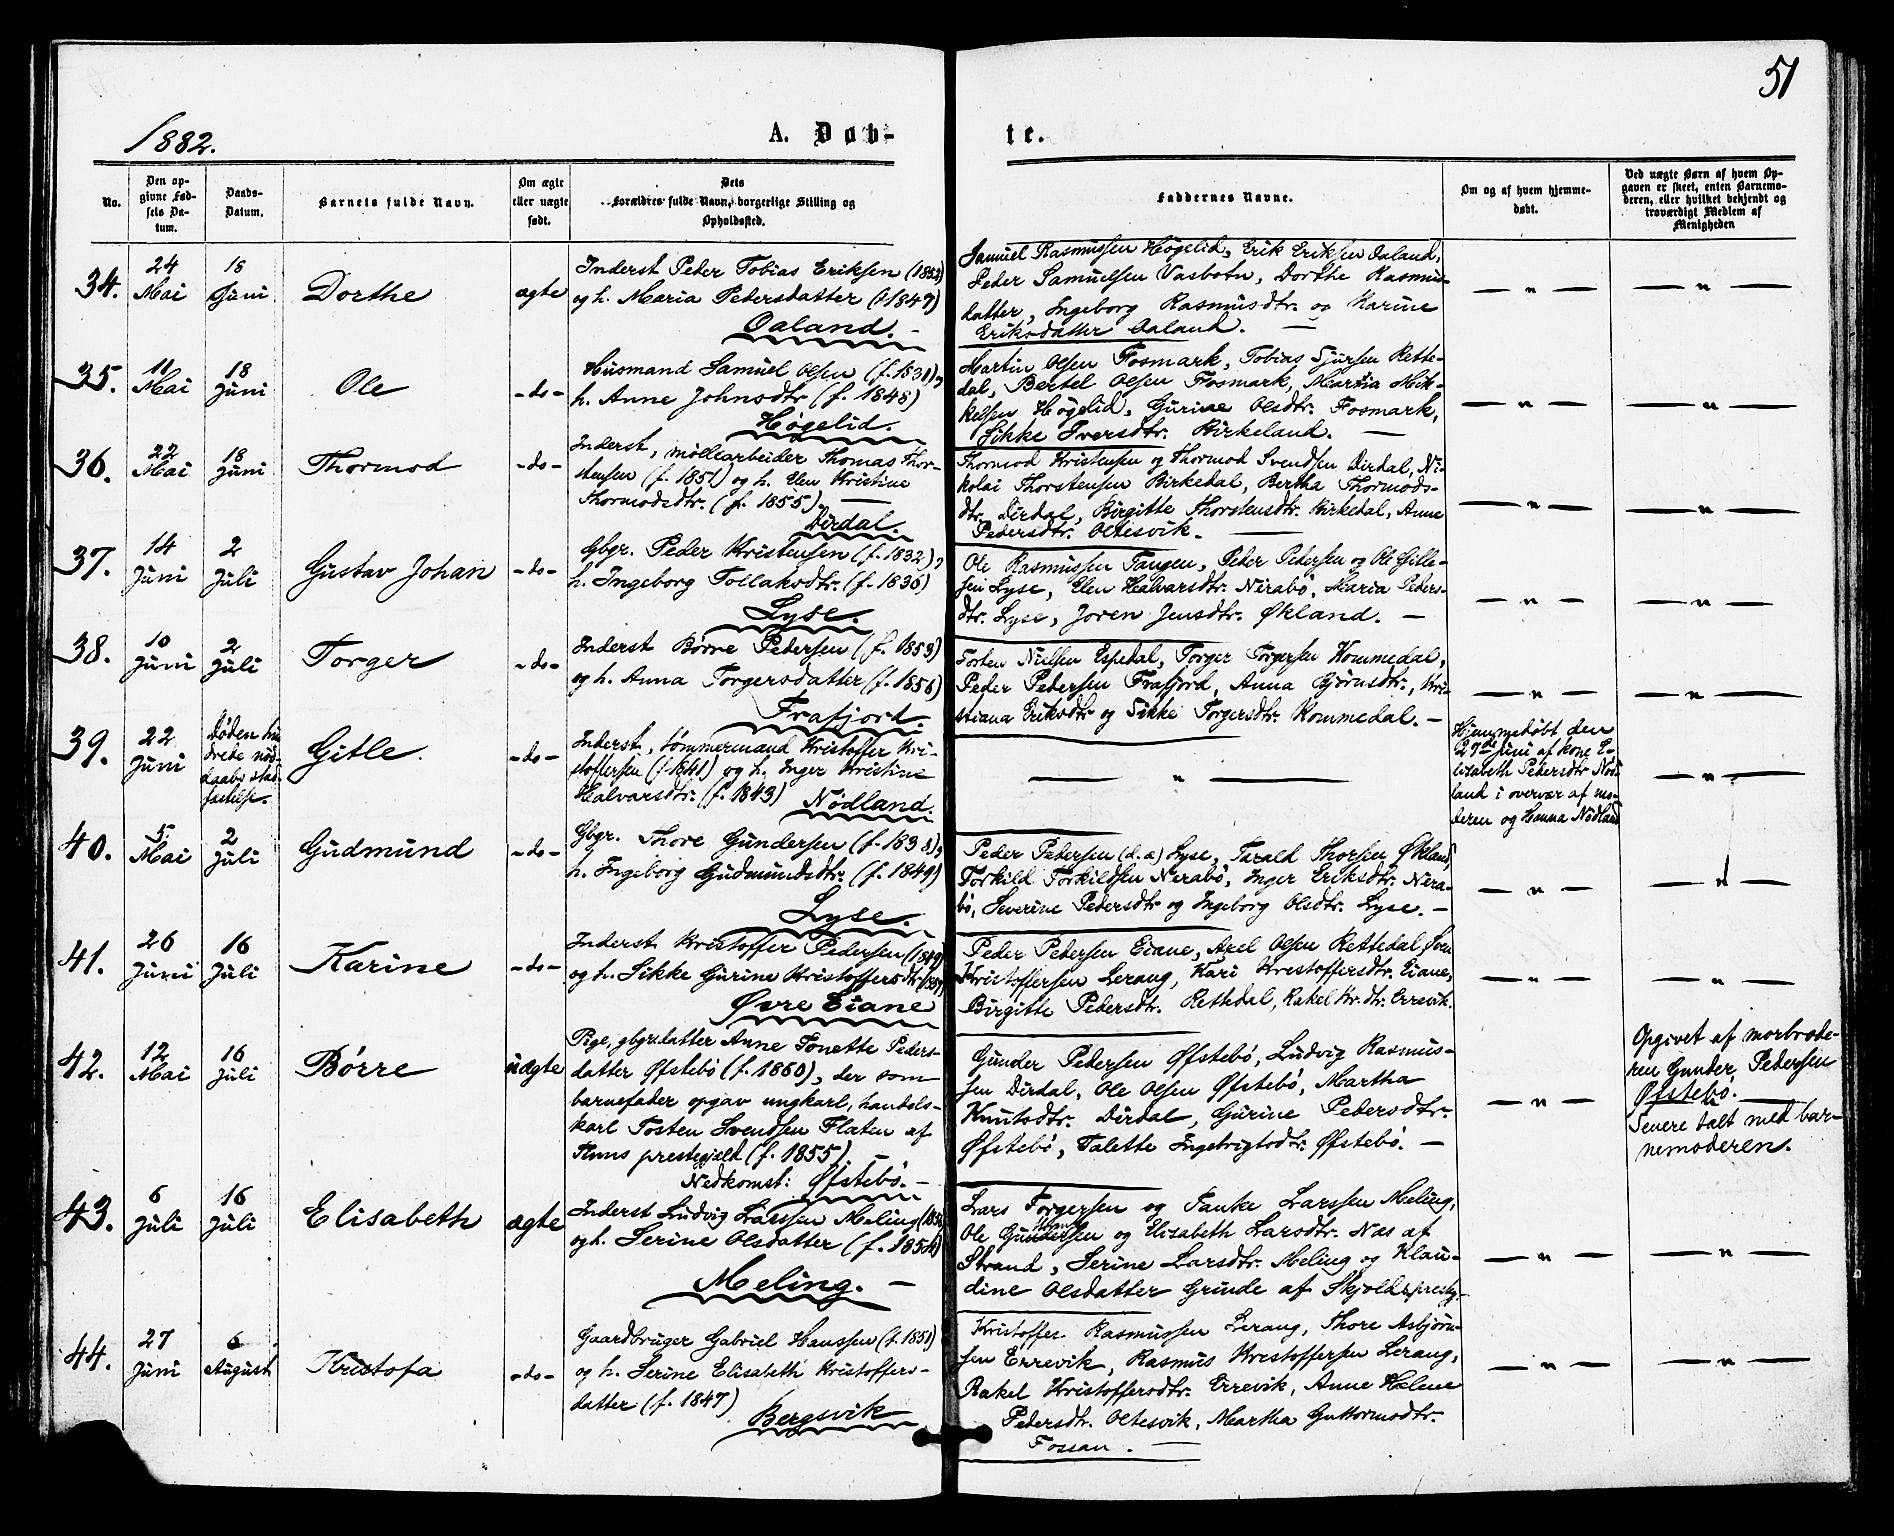 51
1882.
A. Døb-
te.
No.
Den op-
givne Fød-
sels Da-
tum.
Daabs-
Datum.
Barnets fulde Navn.
Om ægte
eller uægte
født.
Dets
Forældres fulde Navn, borgerlige Stilling og
Opholdssted.
Faddernes Navne.
Om og af hvem hjemme-
døbt.
Ved uægte Børn af hvem Op-
gaven er skeet, enten Barnemo-
deren, eller hvilket bekjendt og
troværdigt Medlem af
Menigheden
34.
24
Mai
18
Juni
Dorthe
ægte
Inderst Peder Tobias Eriksen (1852)
og h. Maria Pedersdatter (f 1847)
Oaland. -
Samuel Rasmussen Høgelid, Erik Eriksen Oaland,
Peder Samuelsen Vasbotn, Dorthe Rasmus-
datter, Ingeborg Rasmusdtr. og Karine
Eriksdatter Oaland. —
— " —
— " —
35.
11
Mai
18
Juni
Ole
- do -
Husmand Samuel Olsen (f. 1831),
h. Anne Johnsdtr (f. 1848)
Høgelid.
Martin Olsen Fosmark, Tobias Sjursen Rette-
dal, Bertel Olsen Fosmark, Martia Mik-
kelsen Høgelid, Gurine Olsdtr. Fosmark,
Sikke Iversdtr. Birkeland. —
— " —
— " —
36.
22
Mai
18
Juni
Thormod
- do -
Inderst, møllearbeider Thomas Thor-
stensen (f. 1851) og h. Elen Kristine
Thormodsdtr. (f. 1855). —
Dirdal.
Thormod Kristensen og Thormod Svendsen Dirdal, Ni-
kolai Thorstensen Birkedal, Bertha Thormods-
dtr. Dirdal, Birgitte Thorstensdtr. Birkedal, Anne
Pedersdtr. Oltesvik. —
— " —
— " —
37.
14
Juni
2
Juli
Gustav Johan
- do -
Gbgr. Peder Kristensen (f. 1832),
h. Ingeborg Tollaksdtr. (f. 1836)
Lyse.
Ole Rasmussen Tangen, Peter Pedersen og Ole Gitle-
sen Lyse, Elen Halvarsdtr. Nerabø, Maria Peders-
dtr. Lyse, Joren Jensdtr. Økland. —
— " —
— " —
38.
10
Juni
2
Juli
Torger
- do -
Inderst Børre Pedersen (f. 1858)
og h. Anna Torgersdatter (f. 1856)
Frafjord.
Torten Nielsen Espedal, Torger Torgersen Kommedal,
Peder Pedersen Frafjord, Anna Bjørnsdtr., Kri-
stiana Eriksdtr og Sikke Torgersdtr. Kommedal. —
— " —
— " —
39.
22
Juni
Døden hin
drede nød-
daabs stad
fæstelse.
Gitle.
- do -
Inderst, tømmermand Kristoffer Kri-
stoffersen (f 1841) og h. Inger Kristine
Halvarsdtr. (f. 1843) Nødland.
— " —
Hjemmedøbt den
27de juni af kone E-
lisabeth Pedersdtr Nød-
land i overvær af mo-
deren og Hanna Nødland
— " —
40.
5
Mai
2
Juli
Gudmund
- do -
Gbgr. Thore Gundersen (f. 1838),
h. Ingeborg Gudmundsdtr. (f. 1849)
Lyse.
Peder Pedersen (d.æ) Lyse, Tarald Thorsen Økland,
Torkild Torkildsen Nerabø, Inger Eriksdtr. Nera-
bø, Severine Pedersdtr og Ingeborg Olsdtr. Lyse. —
— " —
— " —
41.
26
Juni
16
Juli
Karine
- do -
Inderst Kristoffer Pedersen (1849)
og h. Sikke Gurine Kristoffersdtr
Øvre Eiane
Peder Pedersen Eiane, Axel Olsen Rettedal, Sven
Kristoffersen Lerang, Kari Kristoffersdtr. Eiane,
Birgitte Pedersdtr. Rettedal, Rakel Kr. dtr. Errevik.
— " —
— " —
42.
12
Mai
16
Juli
Børre
uægte
Pige, gbgr.datter Anne Tonette Peders-
datter Øfstebø (f. 1860), der som
barnefader opgav ungkarl, handels-
karl Tosten Svendsen Flaten af
Finns prestegjeld (f. 1855).
Nedkomst: Øfstebø. —
Gunder Pedersen Øfstebø, Ludvig Rasmus-
sen Dirdal, Ole Olsen Øfstebø, Martha
Knutsdtr. Dirdal, Gurine Pedersdtr.
Øfstebø, Talette Ingebrigtsdtr. Øfstebø. —
— " —
Opgivet af morbrode-
ren Gunder Pedersen
Øfstebø. —
Senere talt med bar-
nemoderen.
43.
6
Juli
16
Juli
Elisabeth
ægte
Inderst Ludvig Larssen Meling
og h. Serine Olsdatter (f. 1854)
Meling. —
Lars Torgersen og Tanke Larssen Meling,
Ole Gundersen og Elisabeth Larsdtr. Næs af
Strand, Serine Larsdtr. Meling og Klau-
dine Olsdatter Grinde af Skjolds prestg.
— " —
— " —
44.
27
Juni
6
August
Kristofa
- do -
Gaardbruger Gabriel Hanssen (f. 1851)
og h. Serine Elisabeth Kristoffers-
datter (f. 1847)
Bergsvik
Kristoffer Rasmussen Lerang, Thore Asbjørn-
sen Errevik, Rasmus Kristoffersen Lerang,
Rakel Kristoffersdtr. Errevik, Anne Helene
Pedersdtr. Oltesvik, Martha Guttormsdtr.
Fossan. —
— " —
— " —